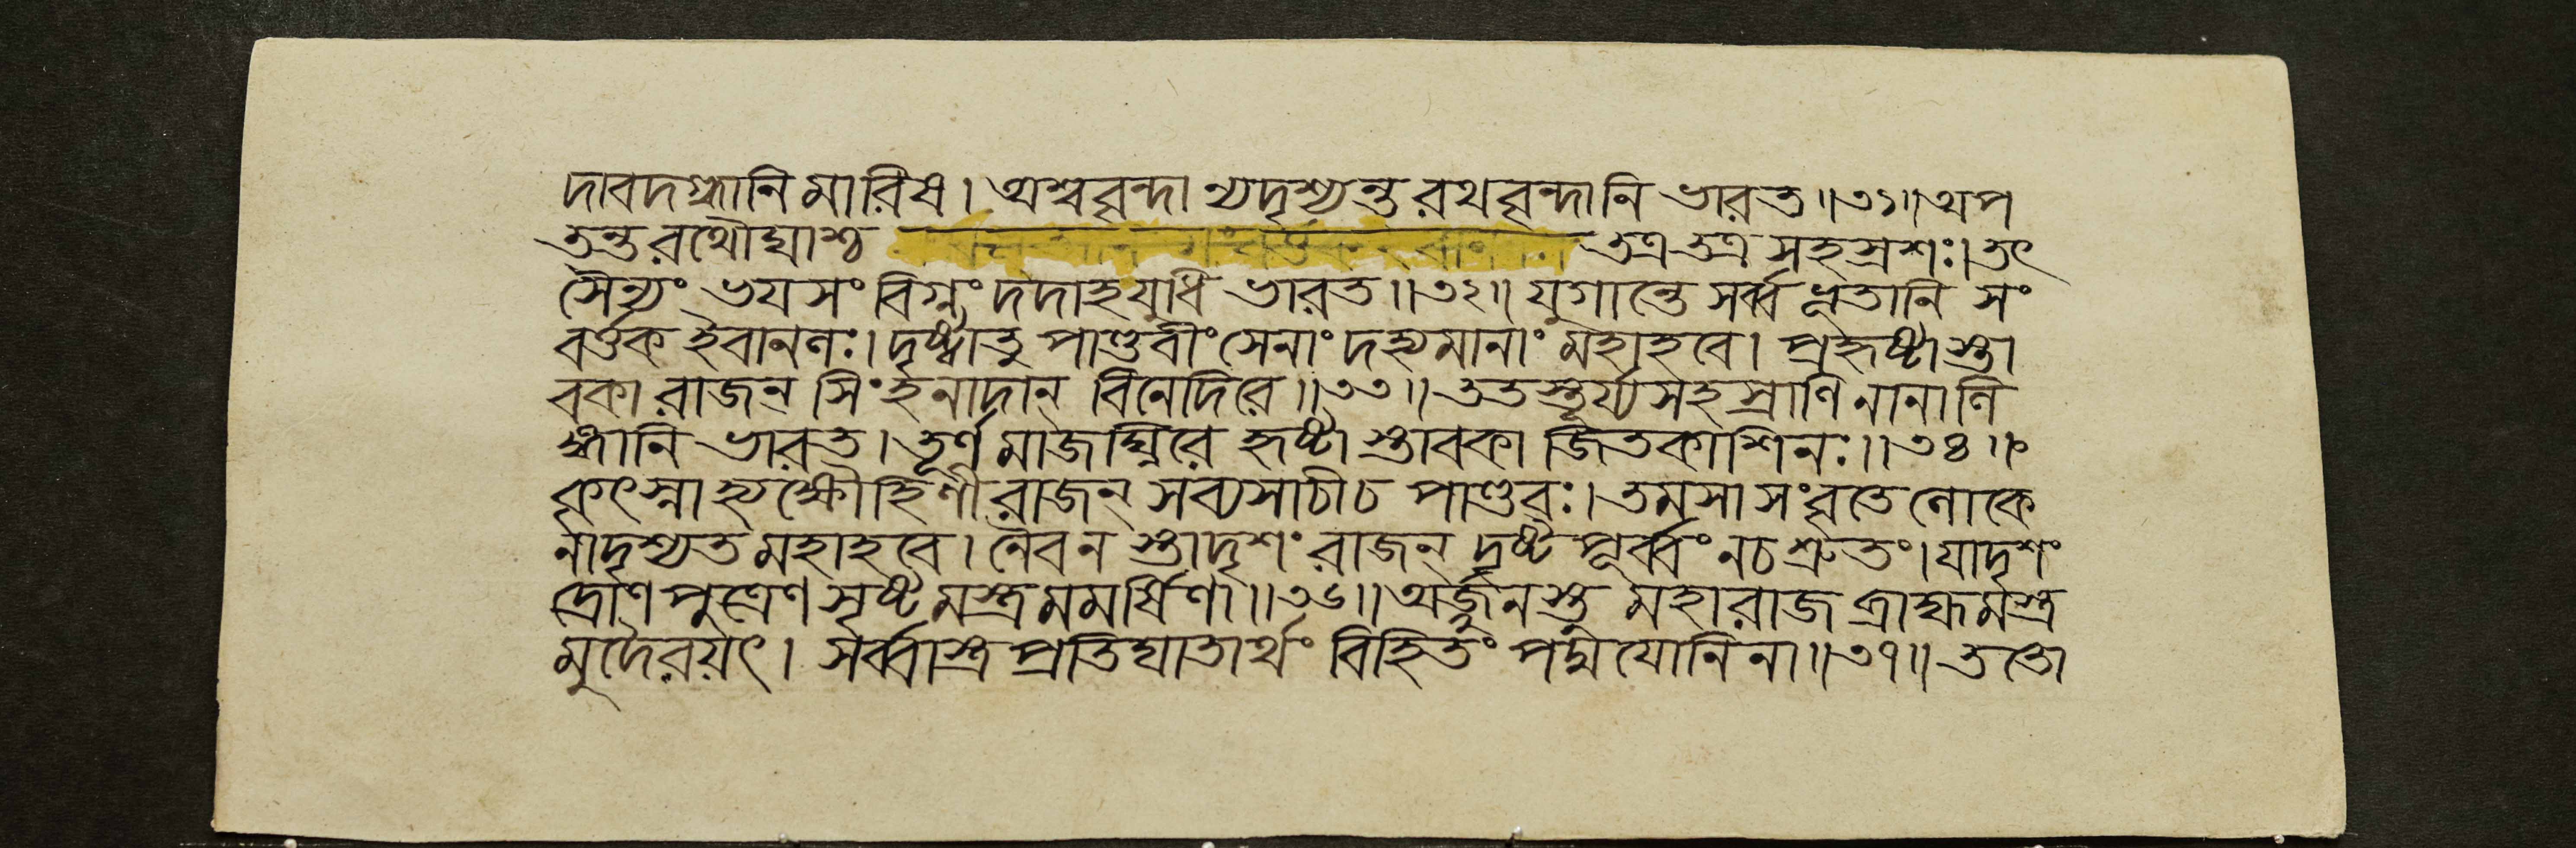 দাবদগ্ধানি মারিষ। অশ্ববৃন্দা ন্যদৃশ্যন্ত রথবৃন্দানি ভারত॥৩১॥ অপ
তন্ত রথৌঘাশ্চ তত্র তত্র সহস্রশঃ। তৎ
সৈন্যং ভয সংবিগ্নং দদাহ যুধি ভারত॥৩২॥ যুগান্তে সর্ব্ব ভূতানি সং
বর্ত্তক ইবানলঃ। দৃষ্ট্বাতু পাণ্ডবীং সেনাং দহ্যমানাং মহাহবে। প্রহৃষ্টা স্তা
বকা রাজন্ সিংহনাদান্ বিনেদিরে॥৩৩॥ ততস্তূর্য্যসহস্রাণি নানালি
ঙ্গানি ভারত। তূর্ণমাজঘ্নিরে হৃষ্টা স্তাবকা জিতকাশিনঃ॥৩৪॥
কৃৎস্না হ্যক্ষৌহিণী রাজন্ সব্যসাচীচ পাণ্ডবঃ। তমসা সংবৃতে লোকে
নাদৃশ্যত মহাহবে। নৈবন স্তাদৃশং রাজন্ দৃষ্টপূর্ব্বং নচ শ্রুতং। যাদৃশং
দ্রোণপুত্রেণ সৃষ্টমস্ত্রমমর্ষিণা॥৩৬॥ অর্জ্জুনস্তু মহারাজ ব্রাহ্মমস্ত্র
মুদৈরয়ৎ। সর্ব্বাস্ত্র প্রতিঘাতার্থং বিহিতং পদ্মযোনিনা॥৩৭॥ ততো